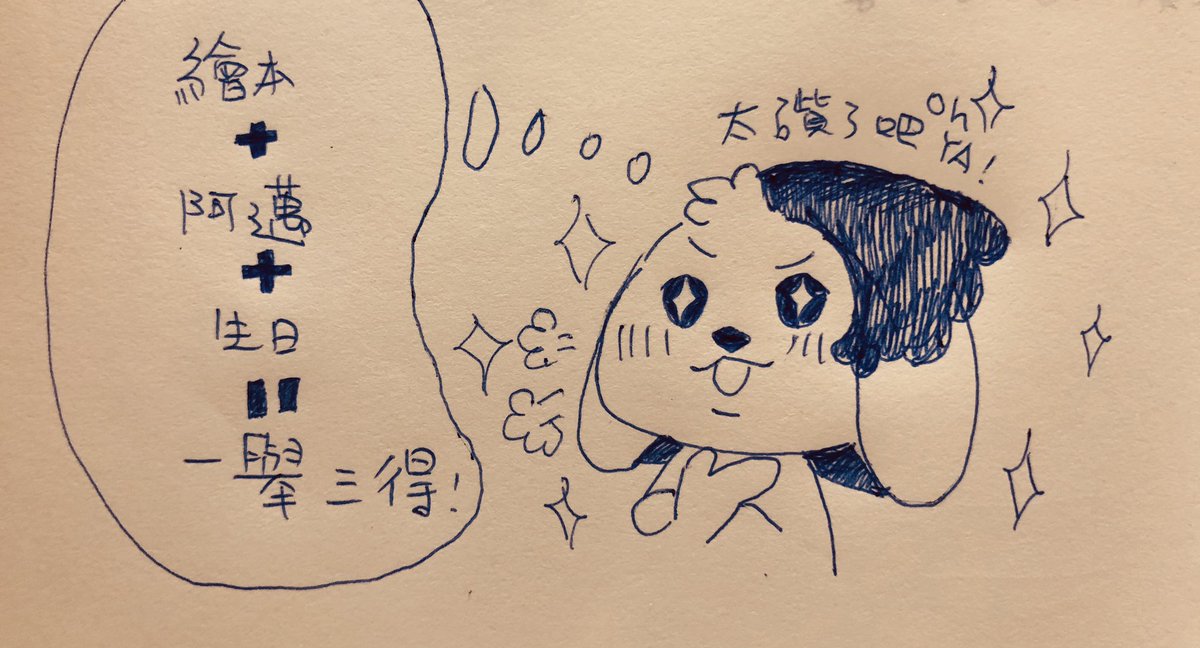 繪本
+
阿邁
+
生日
=
一舉三得!
太讚了吧 Oh
YA!